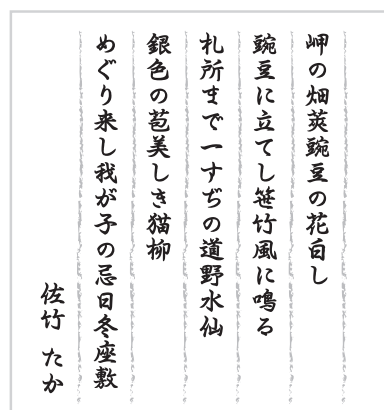 岬の畑莢豌豆の花白し
豌豆に立てし笹竹風に鳴る
札所まで一すぢの道野水仙
銀色の苞美しき猫柳
めぐり来し我が子の忌日冬座敷
佐竹 たか